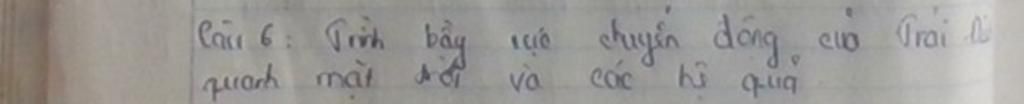 Câu 6: Trình bầy sự chuyển động của Trái Đ
quanh mặt trời và các hệ quả